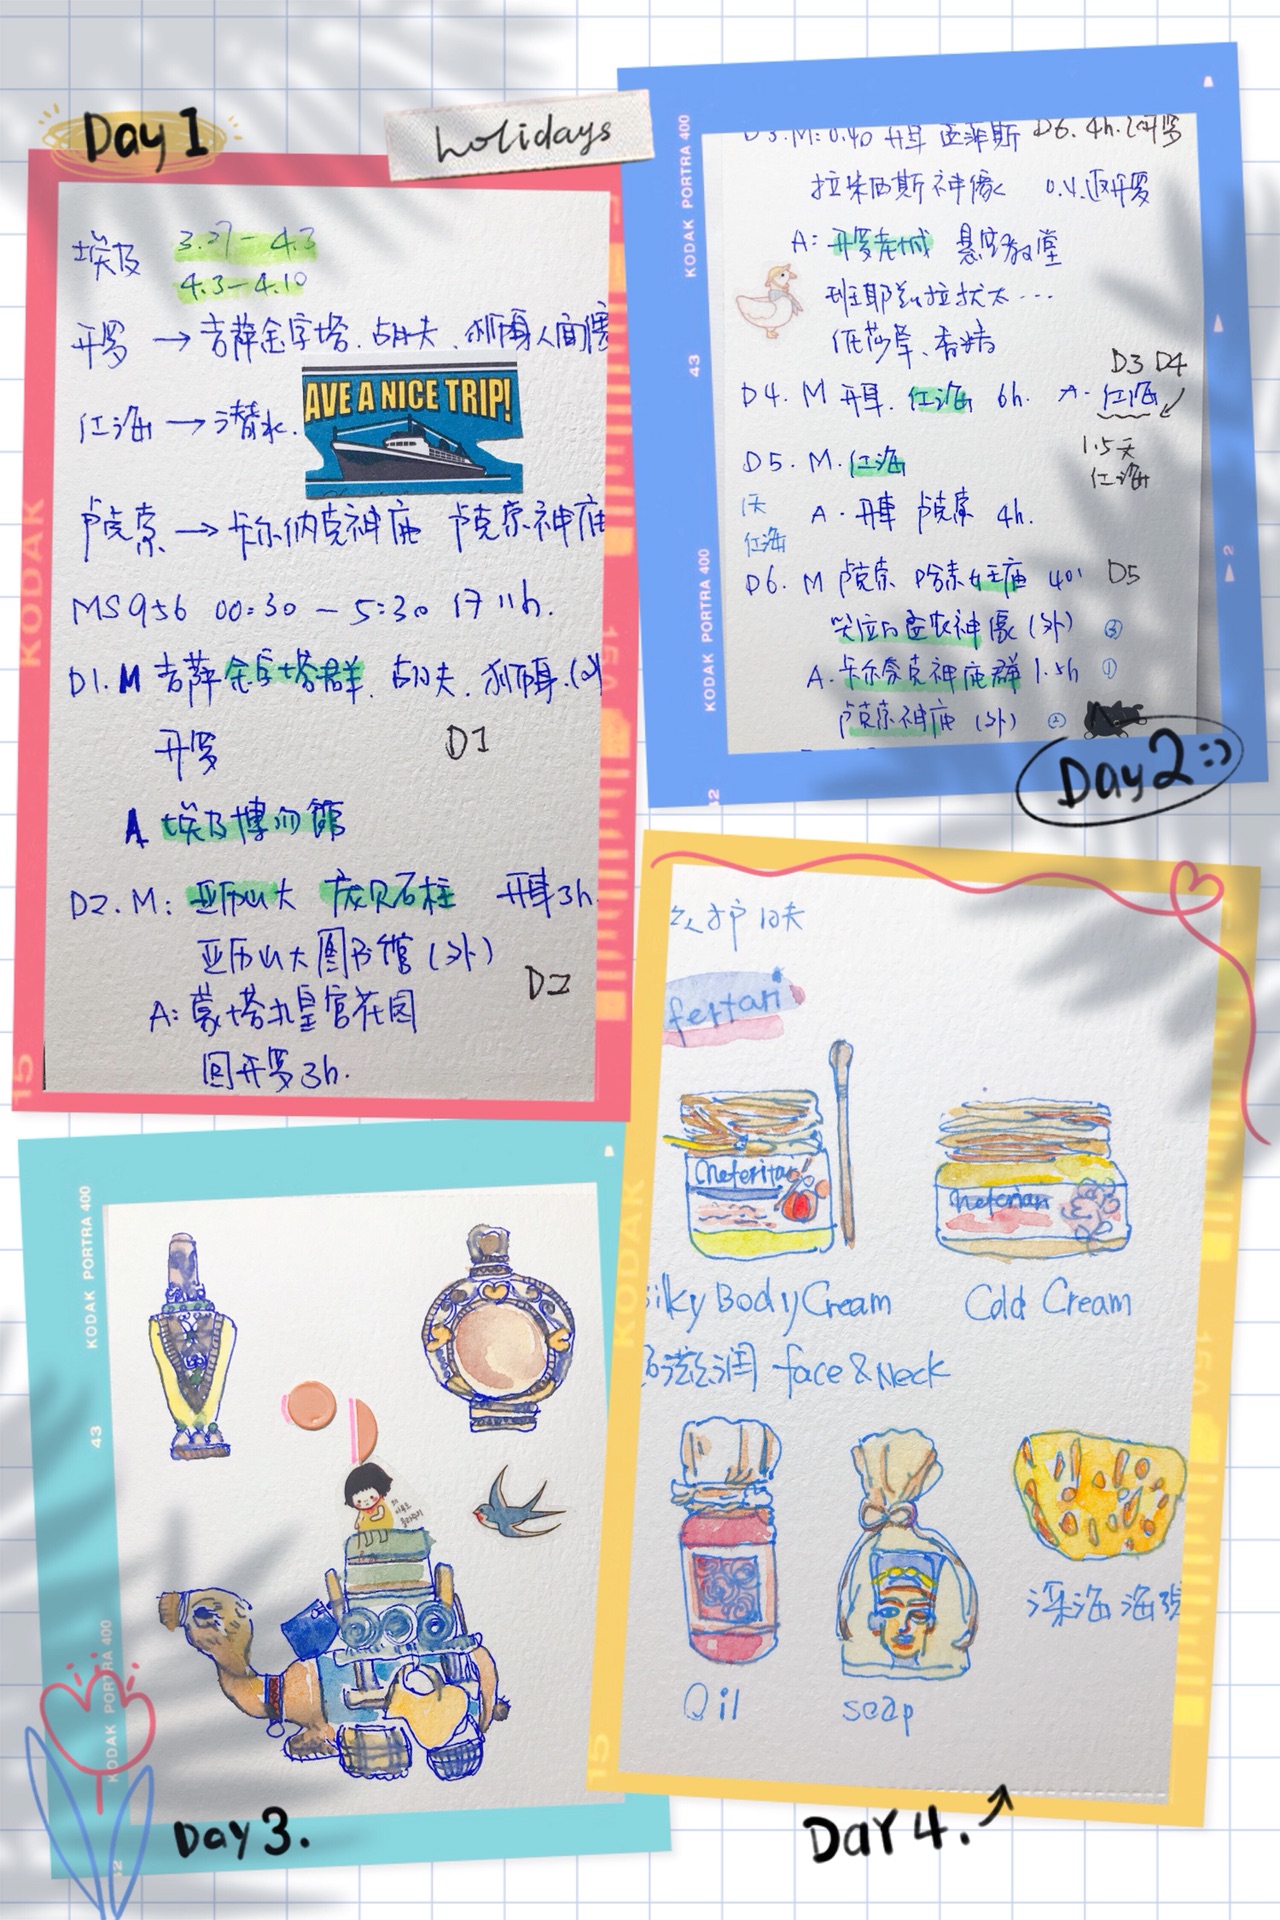 Day 1
holidays
埃及 3.27 — 4.3
4.3 — 4.10
开罗 → 吉萨金字塔. 胡夫. 狮身人面像
红海 → 潜水.
AVE A NICE TRIP!
卢克索 → 卡尔纳克神庙 卢克索神庙
MS956 00:30 — 5:30 17 11h.
D1. M 吉萨金字塔群. 胡夫. 狮身.(外
开罗 D1
A 埃及博物馆
D2. M: 亚历山大 庞贝石柱 开车3h.
亚历山大图书馆 (外)
D2
A: 蒙塔扎皇宫花园
回开罗3h.
KODAK
15
KODAK PORTRA 400
43
KODAK PORTRA 400
D3. M: 0.40 开车 孟菲斯 D6. 4h.
拉米西斯神像 返开罗
A: 开罗老城 悬空教堂
班耶兹拉犹太...
纸莎草、香精
D3 D4
D4. M 开车. 红海 6h. A. 红海
1.5天
红海
D5. M. 红海
1天
红海
A. 开车 卢克索 4h.
D6. M 卢克索 哈赤女王庙 40' D5
哭泣的孟农神像 (外) ③
A. 卡尔奈克神庙群 1.5h ①
卢克索神庙 (外) ②
Day 2 :)
KODAK PORTRA 400
43
KODAK PORTRA 400
Day 3.
fertari
Neferitari
Nefertari
Silky Body Cream
Cold Cream
滋润 face & Neck
Oil
soap
深海 海
KODAK
15
DAY 4.